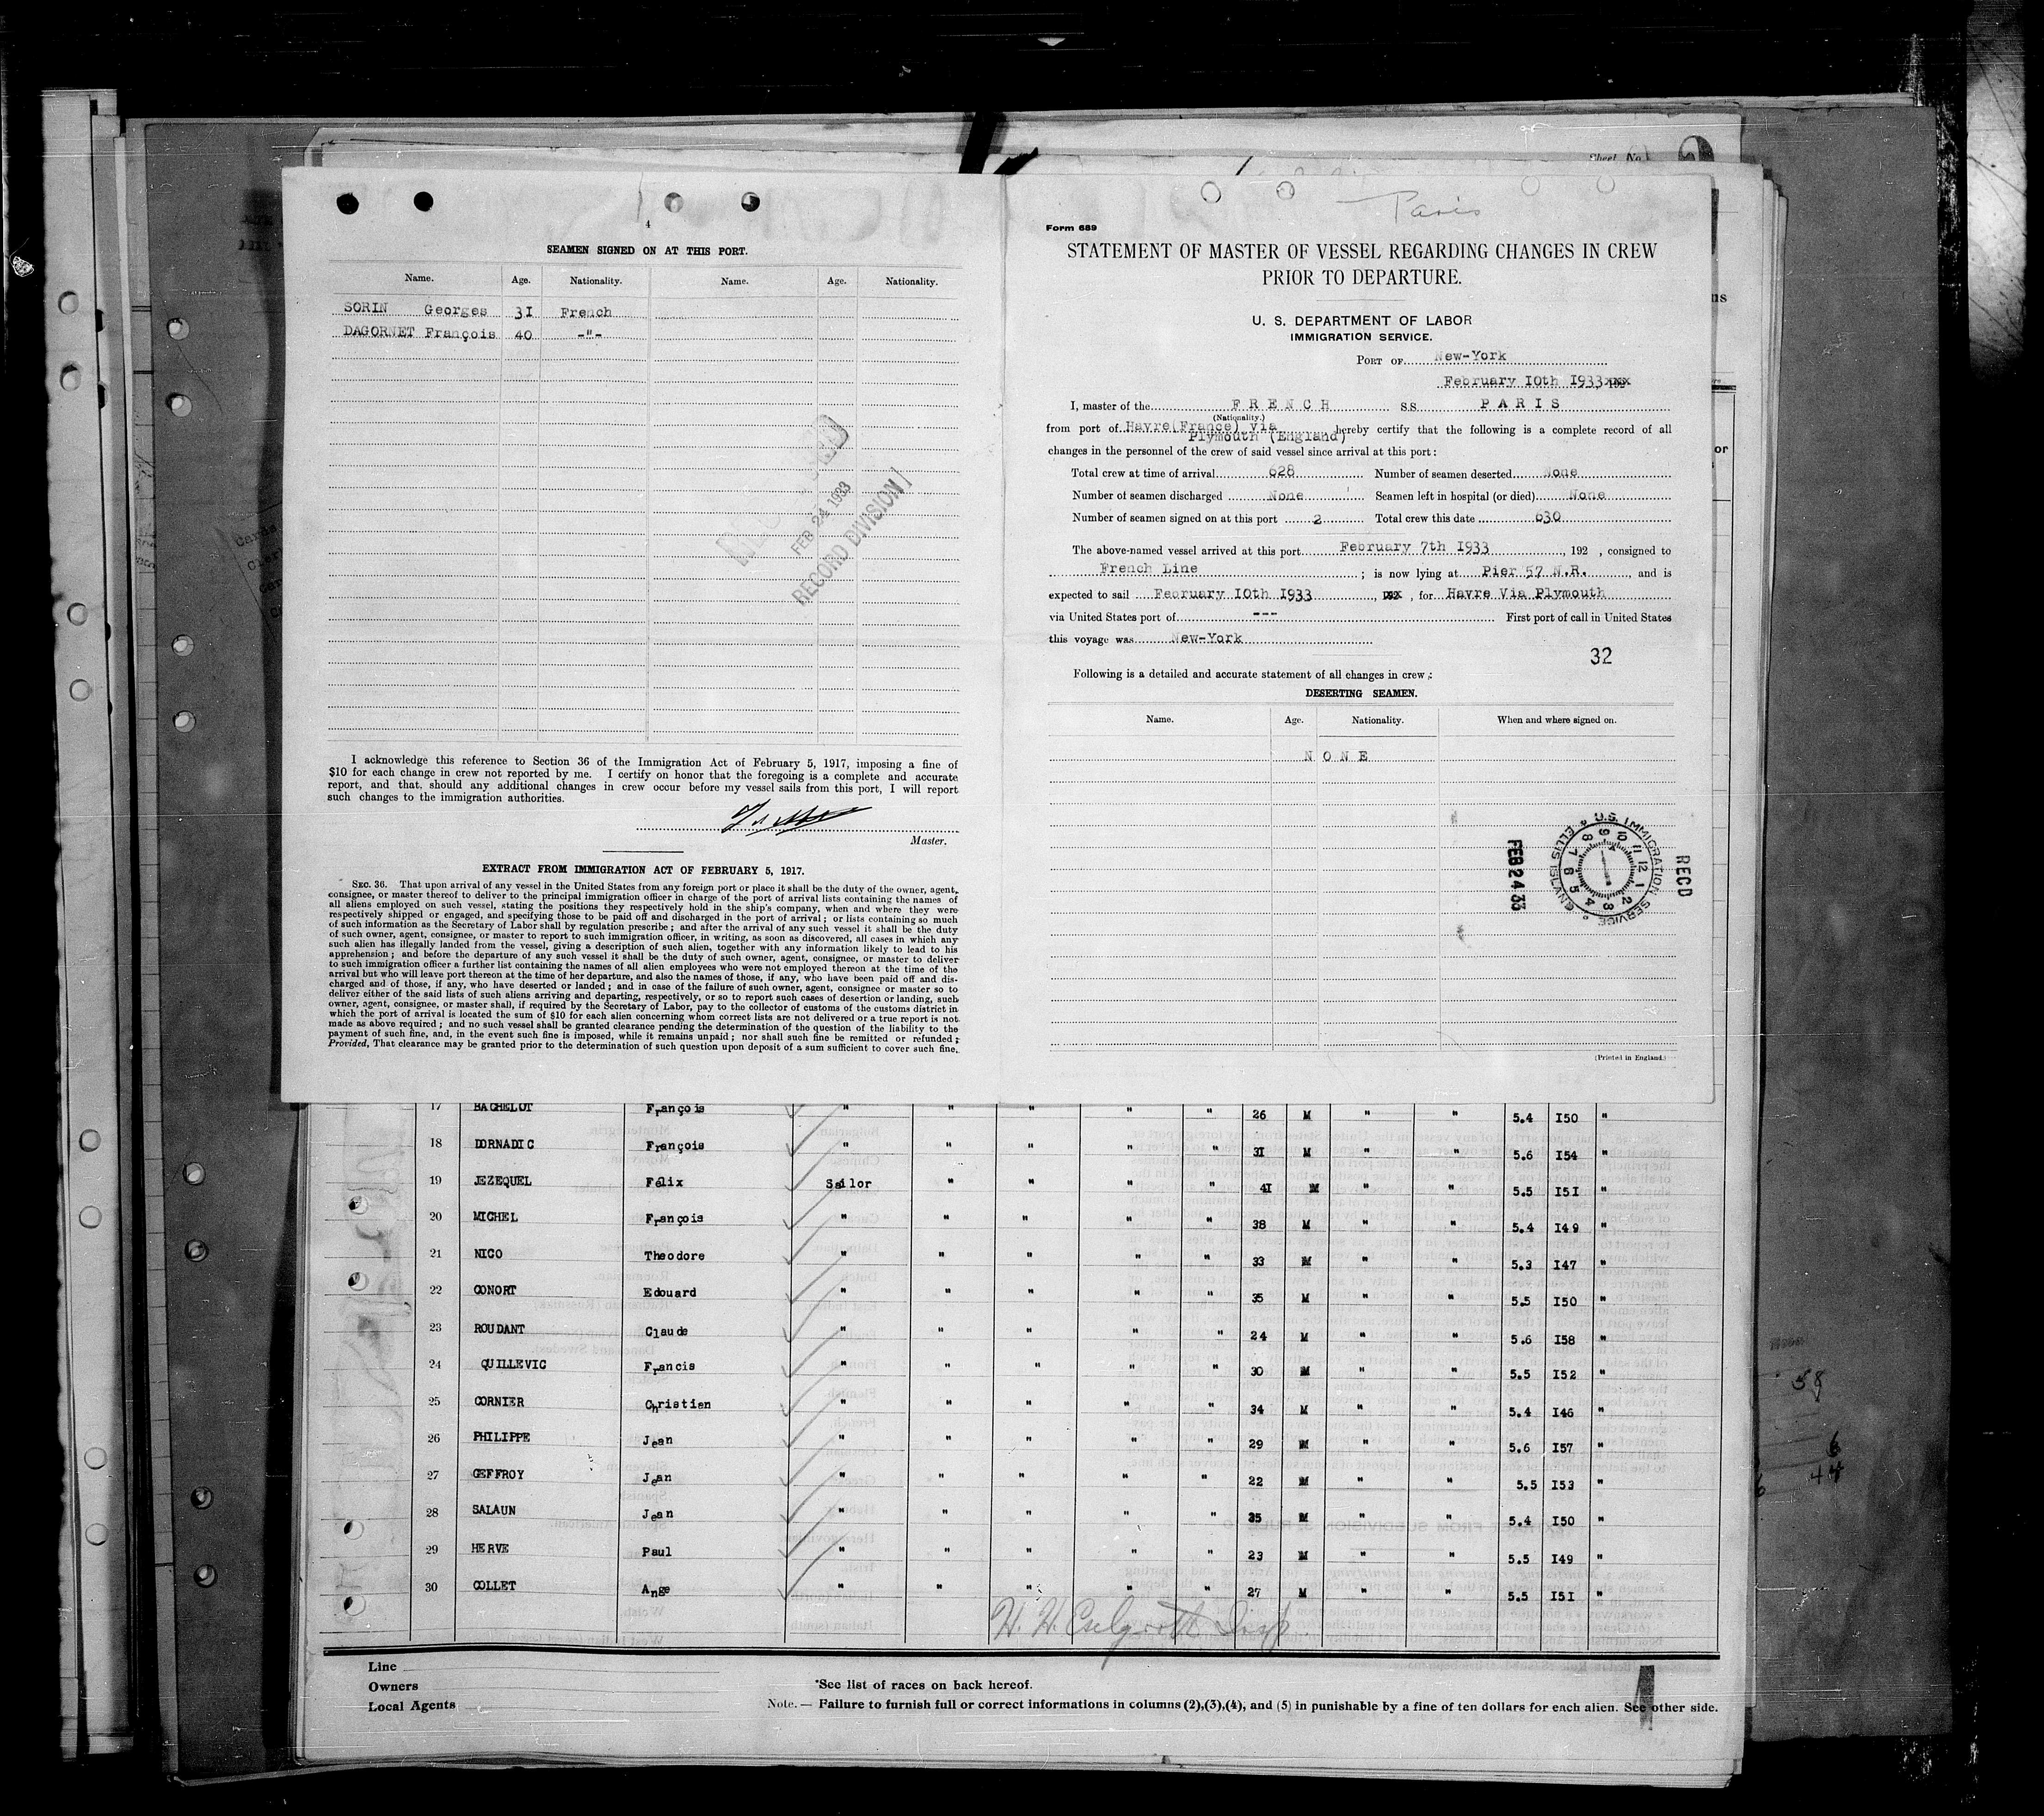 Sheet No.
4
SEAMEN SIGNED ON AT THIS PORT.
Name. Age. Nationality. Name. Age. Nationality.
SORIN Georges 3I French
DAGORNET François 40 -"-
FEB 24 1933
RECORD DIVISION
I acknowledge this reference to Section 36 of the Immigration Act of February 5, 1917, imposing a fine of
$10 for each change in crew not reported by me. I certify on honor that the foregoing is a complete and accurate
report, and that, should any additional changes in crew occur before my vessel sails from this port, I will report
such changes to the immigration authorities.
Master.
EXTRACT FROM IMMIGRATION ACT OF FEBRUARY 5, 1917.
SEC. 36. That upon arrival of any vessel in the United States from any foreign port or place it shall be the duty of the owner, agent,
consignee, or master thereof to deliver to the principal immigration officer in charge of the port of arrival lists containing the names of
all aliens employed on such vessel, stating the positions they respectively hold in the ship's company, when and where they were
respectively shipped or engaged, and specifying those to be paid off and discharged in the port of arrival; or lists containing so much
of such information as the Secretary of Labor shall by regulation prescribe; and after the arrival of any such vessel it shall be the duty
of such owner, agent, consignee, or master to report to such immigration officer, in writing, as soon as discovered, all cases in which any
such alien has illegally landed from the vessel, giving a description of such alien, together with any information likely to lead to his
apprehension; and before the departure of any such vessel it shall be the duty of such owner, agent, consignee, or master to deliver
to such immigration officer a further list containing the names of all alien employees who were not employed thereon at the time of the
arrival but who will leave port thereon at the time of her departure, and also the names of those, if any, who have been paid off and dis-
charged and of those, if any, who have deserted or landed; and in case of the failure of such owner, agent, consignee or master so to
deliver either of the said lists of such aliens arriving and departing, respectively, or so to report such cases of desertion or landing, such
owner, agent, consignee, or master shall, if required by the Secretary of Labor, pay to the collector of customs of the customs district in
which the port of arrival is located the sum of $10 for each alien concerning whom correct lists are not delivered or a true report is not
made as above required; and no such vessel shall be granted clearance pending the determination of the question of the liability to the
payment of such fine, and, in the event such fine is imposed, while it remains unpaid; nor shall such fine be remitted or refunded;
Provided, That clearance may be granted prior to the determination of such question upon deposit of a sum sufficient to cover such fine.
Paris
Form 689
STATEMENT OF MASTER OF VESSEL REGARDING CHANGES IN CREW
PRIOR TO DEPARTURE.
U. S. DEPARTMENT OF LABOR
IMMIGRATION SERVICE.
PORT OF New-York
February I0th I933
I, master of the FRENCH S.S. PARIS
(Nationality.)
from port of Havre(France) via hereby certify that the following is a complete record of all
Plymouth (England)
changes in the personnel of the crew of said vessel since arrival at this port:
Total crew at time of arrival 628 Number of seamen deserted None
Number of seamen discharged None Seamen left in hospital (or died) None
Number of seamen signed on at this port 2 Total crew this date 630
The above-named vessel arrived at this port February 7th I933, 192 , consigned to
French Line ; is now lying at Pier 57 N.R. , and is
expected to sail February I0th I933 , 192 , for Havre Via Plymouth
via United States port of --- First port of call in United States
this voyage was New-York
32
Following is a detailed and accurate statement of all changes in crew:
DESERTING SEAMEN.
Name. Age. Nationality. When and where signed on.
NONE
RECD
U.S. IMMIGRATION SERVICE
ELLIS ISLAND
FEB 24 33
(Printed in England.)
17 BACHELOT François " " " " " 26 M " " 5.4 I50 "
18 DORNADIC François " " " " " 3I M " " 5.6 I54 "
19 JEZEQUEL Félix Sailor " " " " 4I M " " 5.5 I5I "
20 MICHEL François " " " " " 38 M " " 5.4 I49 "
21 NICO Theodore " " " " " 33 M " " 5.3 I47 "
22 CONORT Edouard " " " " " 35 M " " 5.5 I50 "
23 ROUDANT Claude " " " " " 24 M " " 5.6 I58 "
24 QUILLEVIC Francis " " " " " 30 M " " 5.5 I52 "
25 CORNIER Christian " " " " " 34 M " " 5.4 I46 "
26 PHILIPPE Jean " " " " " 29 M " " 5.6 I57 "
27 GEFFROY Jean " " " " " 22 M " " 5.5 I53 "
28 SALAUN Jean " " " " " 35 M " " 5.4 I50 "
29 HERVE Paul " " " " " 23 M " " 5.5 I49 "
30 COLLET Ange " " " " " 27 M " " 5.5 I5I "
H. H.
Line
Owners
Local Agents
*See list of races on back hereof.
Note.— Failure to furnish full or correct informations in columns (2),(3),(4), and (5) in punishable by a fine of ten dollars for each alien. See other side.
58
6
44